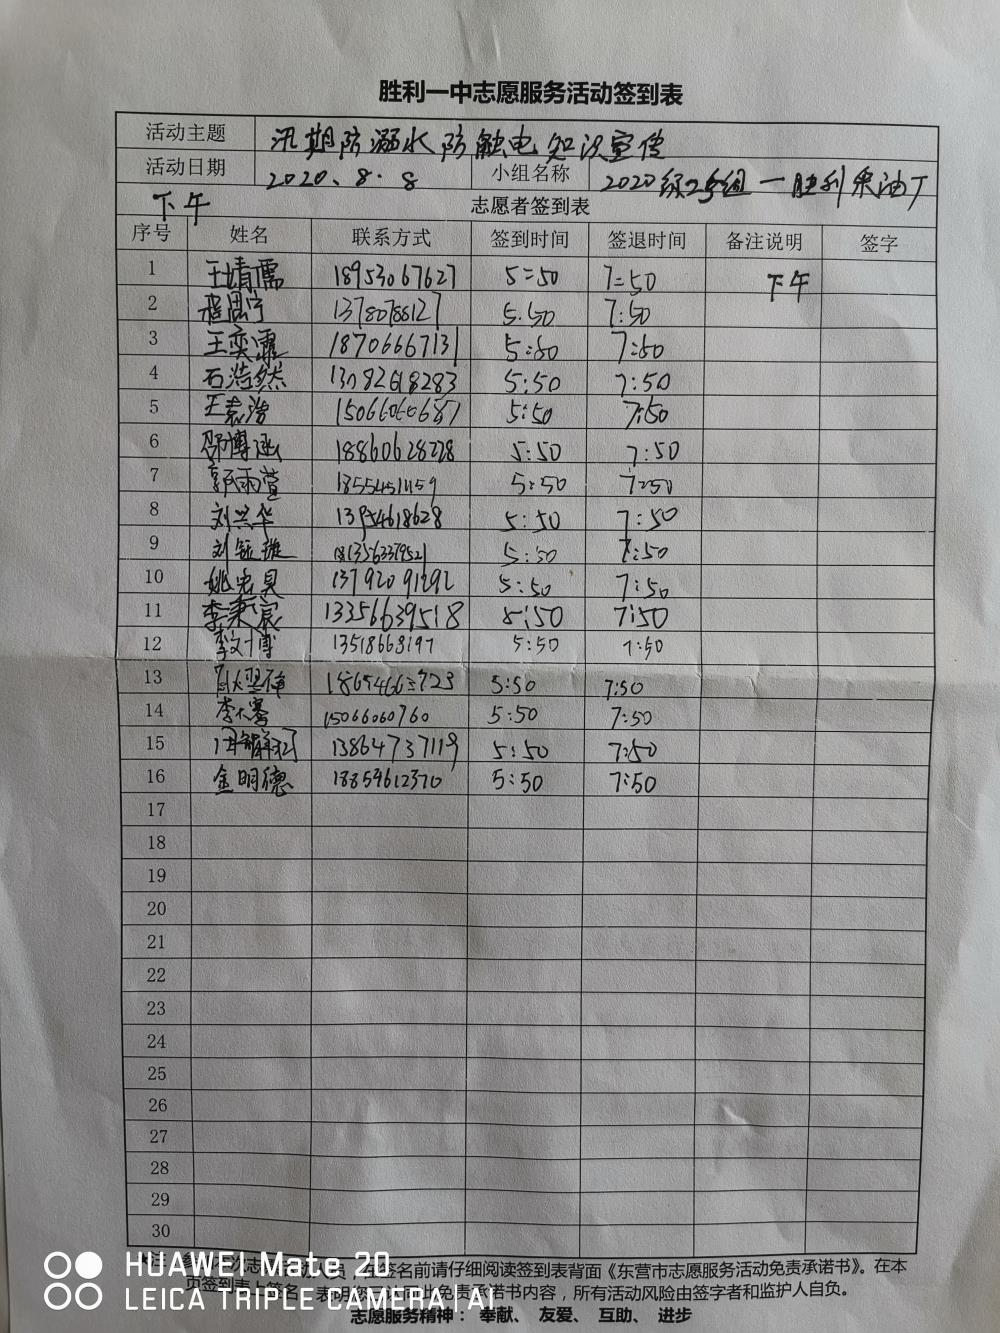 胜利一中志愿服务活动签到表
活动主题 汛期防溺水防触电知识宣传
活动日期 2020.8.8 小组名称 2020级25组—胜利采油厂
下午 志愿者签到表
序号 姓名 联系方式 签到时间 签退时间 备注说明 签字
1 王靖儒 18953067627 5:50 7:50 下午
2 程思宁 13780788127 5.50 7:50
3 王奕霏 18706667131 5:50 7:50
4 石浩然 13082618283 5:50 7:50
5 王袁浩 5:50 7:50
6 邵博涵 18860628228 5:50 7:50
7 郭雨萱 5:50 7:50
8 刘兴华 13954618628 5:50 7:50
9 5:50 7:50
10 13792091292 5:50 7:50
11 李秉宸 13356639518 5:50 7:50
12 李文博 13518668197 5:50 7:50
13 5:50 7:50
14 15066060760 5:50 7:50
15 13864737119 5:50 7:50
16 金明德 18859612370 5:50 7:50
17
18
19
20
21
22
23
24
25
26
27
28
29
30
员,在签名前请仔细阅读签到表背面《东营市志愿服务活动免责承诺书》。在本
页签到表上签名,表明 此免责承诺书内容,所有活动风险由签字者和监护人自负。
志愿服务精神: 奉献、 友爱、 互助、 进步
HUAWEI Mate 20
LEICA TRIPLE CAMERA | AI